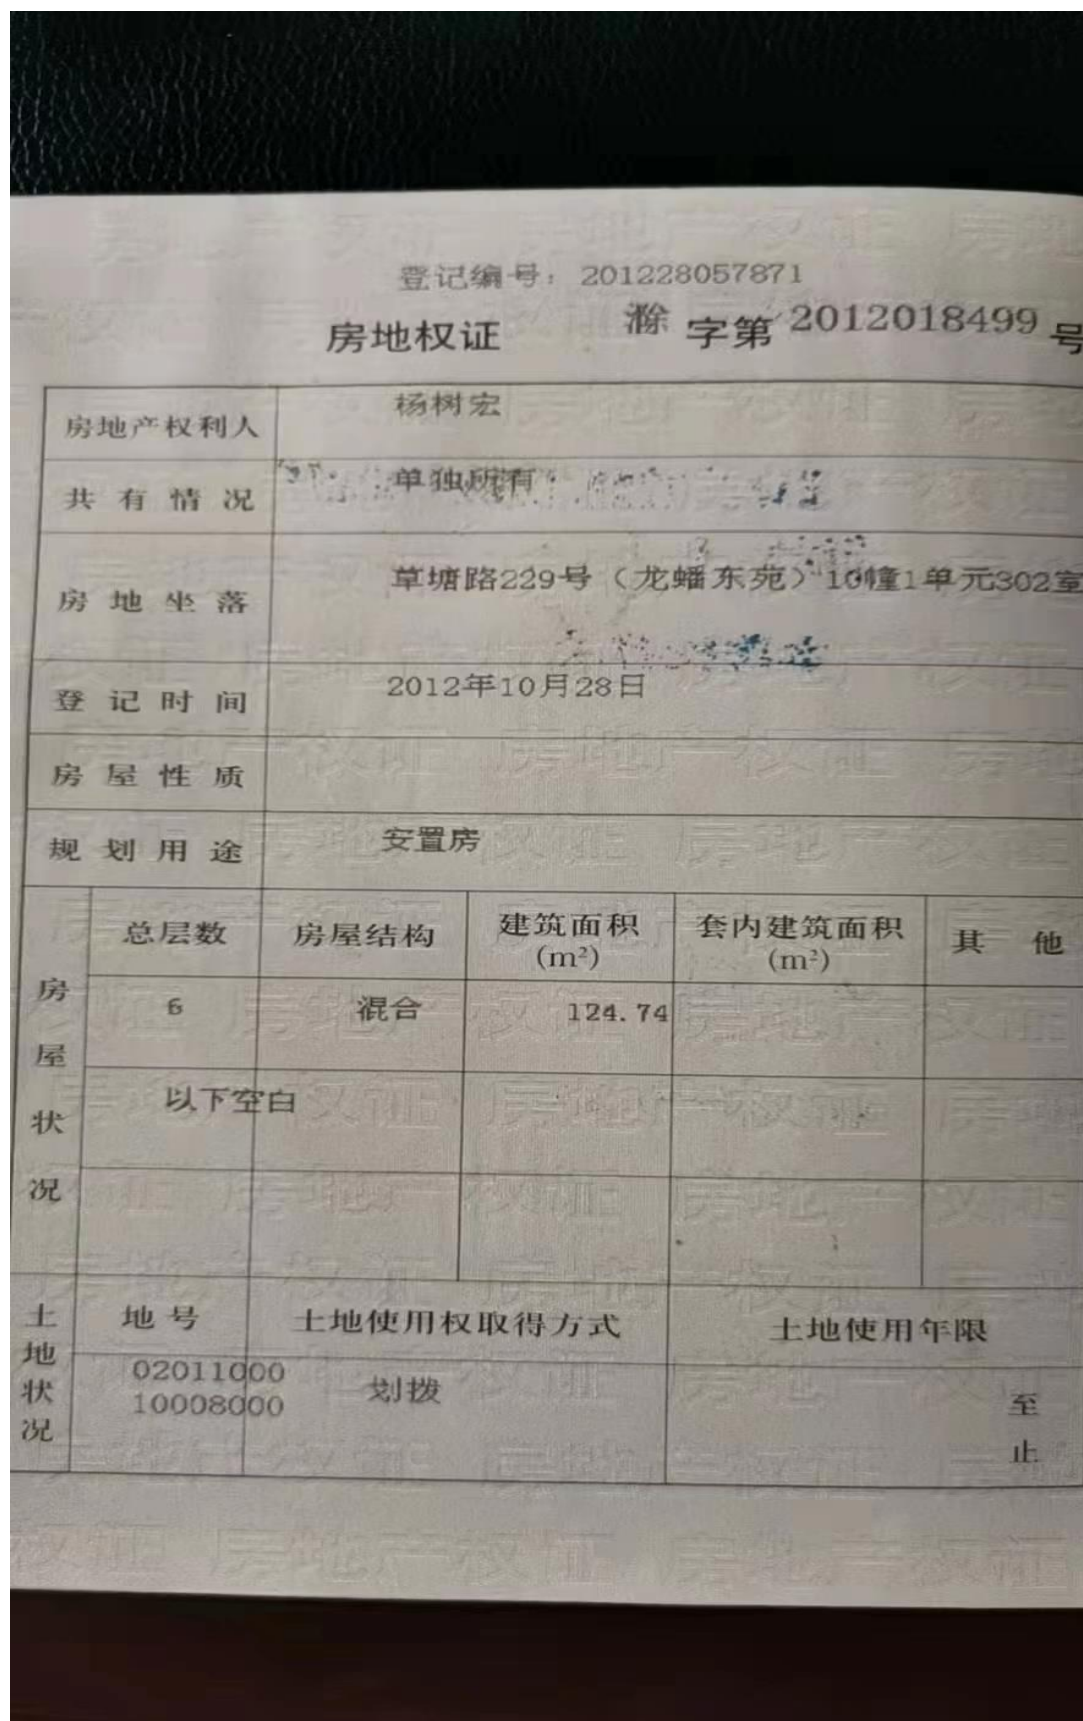 登记编号：201228057871
房地权证 滁 字第 2012018499 号
房地产权利人 杨树宏
共有情况 单独所有
房地坐落 草塘路229号（龙蟠东苑）10幢1单元302室
登记时间 2012年10月28日
房屋性质
规划用途 安置房
房屋状况
总层数 房屋结构 建筑面积(m²) 套内建筑面积(m²) 其他
6 混合 124.74
以下空白
土地状况
地号 土地使用权取得方式 土地使用年限
02011000 划拨 至
10008000 止